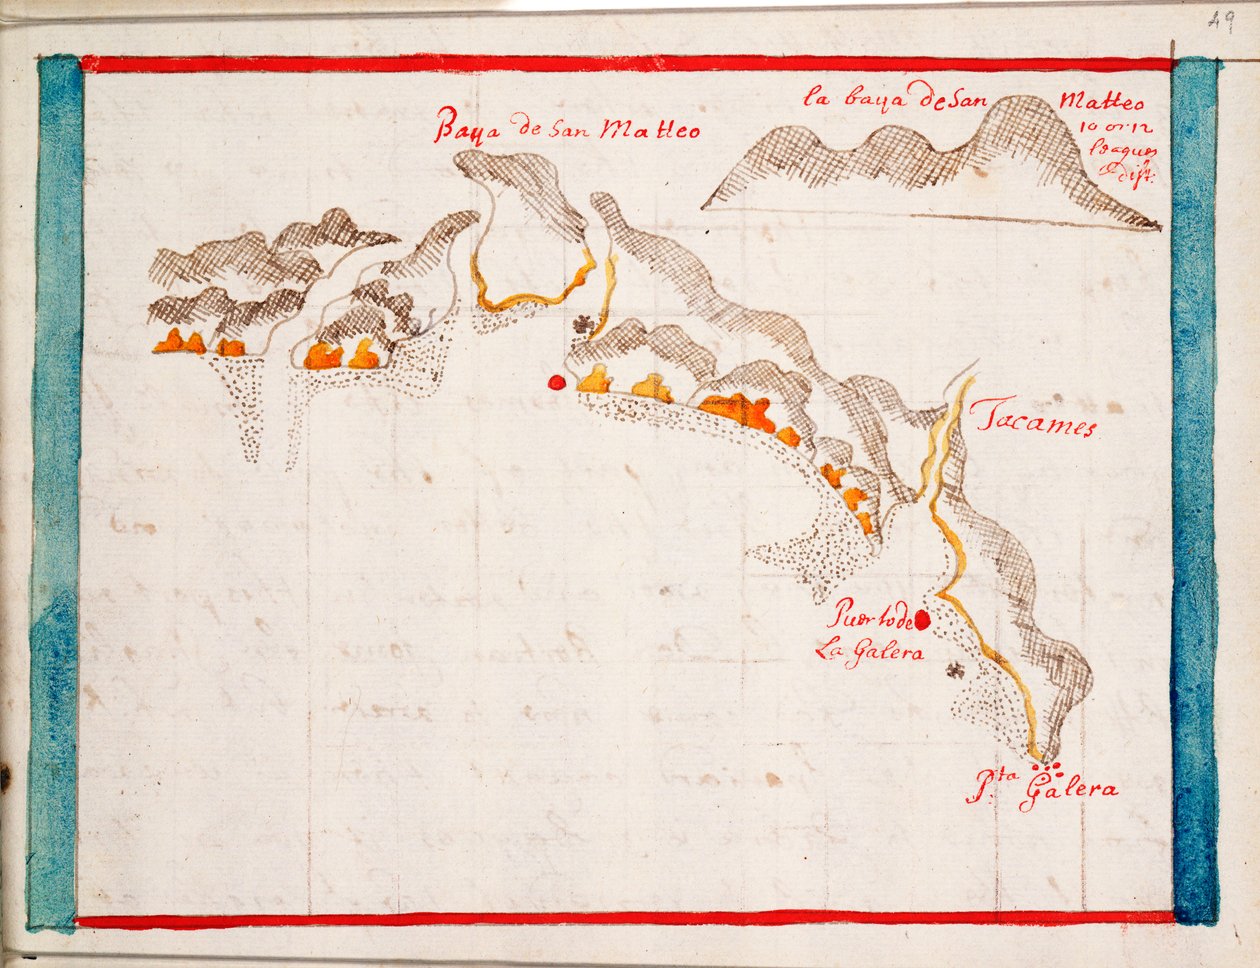 49
la baya de San Matteo
10 or 12
leagues
dist.
Baya de San Matteo
Tacames
Puerto de
La Galera
P.ta Galera